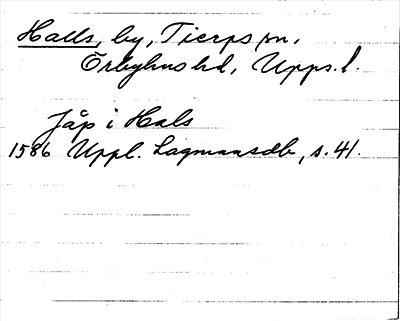 Halls, by, Tierps sn,
Örbyhus hd, Upps. l.
Jåp i Hals
1586 Uppl. Lagmansdb, s. 41.